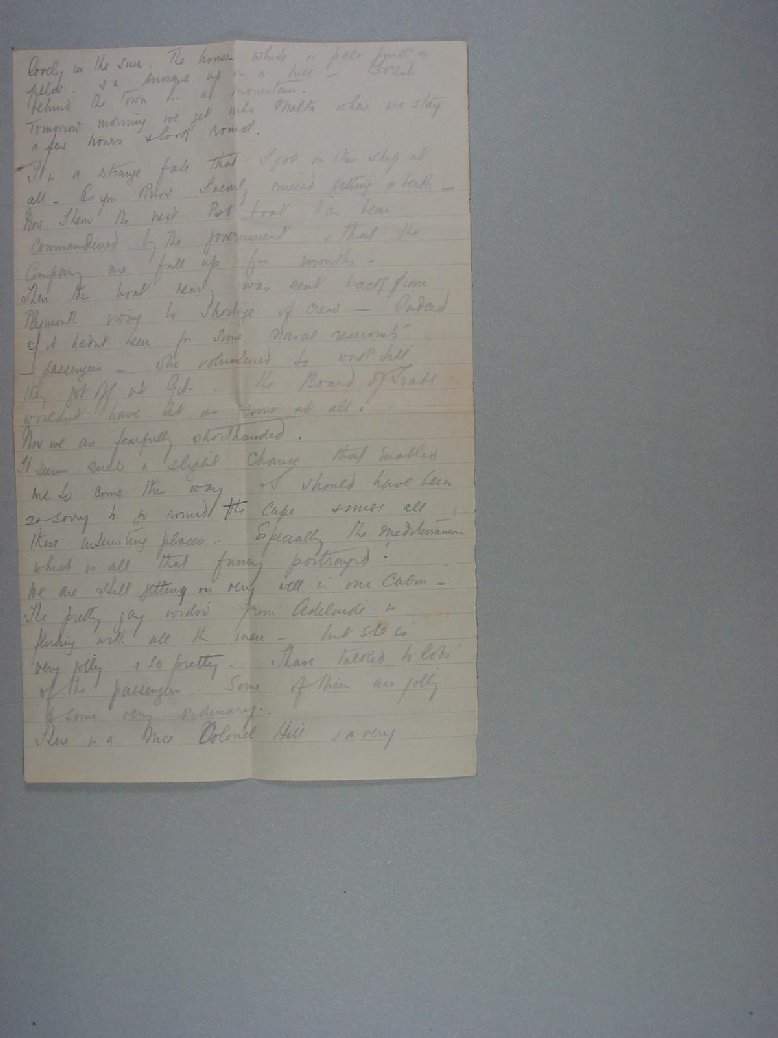 lovely in the sun. The houses white or pale pink or
yellow. & a mosque up on a hill -
behind the town is a mountain.
Tomorrow morning we get into Malta where we stay
a few hours & look round.
It is a strange fate that I got on this ship at
all - As you know I nearly missed getting a berth -
Now I hear the next P&O boat has been
commandeered by the government & that the
Company are full up for months.
Then the boat nearly was sent back from
Plymouth owing to shortage of crew - Indeed
if it hadn't been for some naval reservists
passengers - who volunteered to work till
they got off at Gib - the Board of Trade
wouldn't have let us come at all.
Now we are fearfully shorthanded.
It seems such a slight chance that enabled
me to come this way & I should have been
so sorry to go round the Cape & miss all
these interesting places. Especially the Mediterranean
which is all that fancy portrayed!
We are still getting on very well in our Cabin -
The pretty gay widow from Adelaide is
flirting with all the men - but she is
very jolly & so pretty. I have talked to lots
of the passengers. Some of them are jolly
& some very ordinary.
There is a nice Colonel Hill & a very